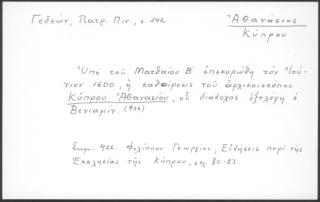 Γεδεών, Πατρ. Πιν., σ 542
Ἀθανάσιος
Κύπρου
"Ὑπὸ τοῦ Ματθαίου Β' ἐπεκυρώθη τὸν Ἰού-
νιον 1600, ἡ καθαίρεσις τοῦ ἀρχιεπισκόπου
Κύπρου Ἀθανασίου, οὗ διάδοχος ἐξελέγη ὁ
Βενιαμὶν (926)
Σημ. 926. Φιλίππου Γεωργίου, Εἰδήσεις περὶ τῆς
Ἐκκλησίας τῆς Κύπρου, σελ. 80-83.